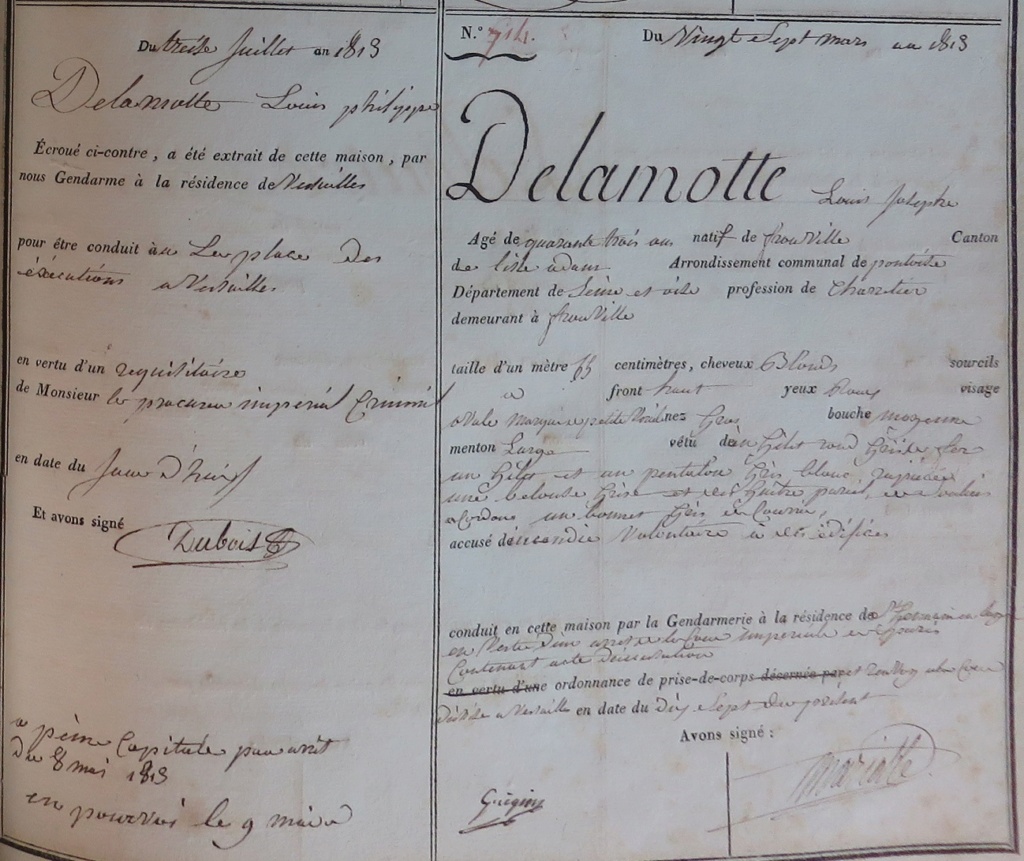 Du treise Juillet an 1813
Delamotte Louis philippe
Écroué ci-contre, a été extrait de cette maison, par
nous Gendarme à la résidence de Versailles
pour être conduit à La place des
éxécutions a Versailles
en vertu d'un requisitoire
de Monsieur le procureur imperial Criminel
en date du Jour d'huis
Et avons signé
Dubois
a peine Capitale par arrêt
du 8 mai 1813
en pourvoi le 9 mai
N.º 714.
Du Vingt Sept mars an 1813
Delamotte Louis Josephe
Agé de quarante trois ans natif de frouVille Canton
de lisle adam Arrondissement communal de pontoise
Département de Seine et oise profession de Charretier
demeurant à frouVille
taille d'un mètre 65 centimètres, cheveux Blonds sourcils
front haut yeux visage
ovale marqué de petite Vérole nez Gros bouche moyenne
menton Large vêtu d'un gilet rond
un gilet et un pantalon Gris blanc
une belouse Grise et des Guêtre pareil, des Souliers
a Cordons un bonnet
accusé d'incendie Volontaire à des édifices
conduit en cette maison par la Gendarmerie à la résidence de St Germain en Laye
en Vertu d'un arrêt de la Cour imperiale de paris
Contenant acte d'accusation
en vertu d'une ordonnance de prise-de-corps décernée par
Versailles en date du dix Sept du présent
Avons signé :
Guignis Mariotte